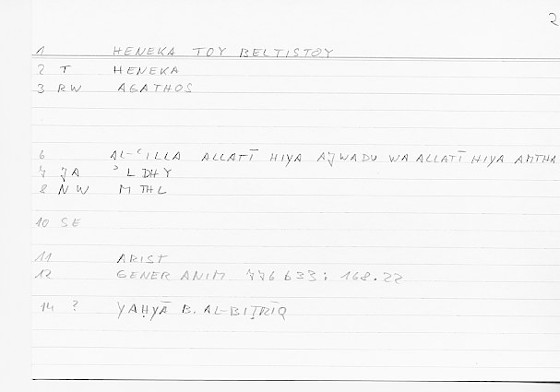 2
1 HENEKA TOY BELTISTOY
2 T HENEKA
3 RW AGATHOS
6 AL-ʿILLA ALLATĪ HIYA AǦWADU WA ALLATĪ HIYA AMTHA
7 ǦA ʾLDHY
8 NW MTHL
10 SE
11 ARIST
12 GENER ANIM 776 633: 168.22
14 ? YAḤYĀ B. AL-BIṬRĪQ